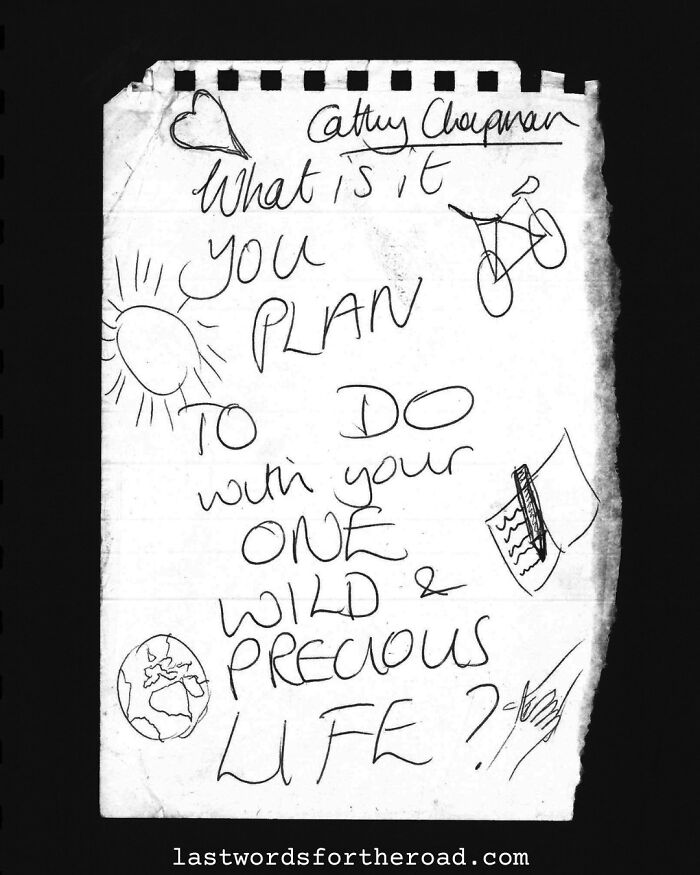 Cathy Chapman
What is it
you
PLAN
TO DO
with your
ONE
WILD &
PRECIOUS
LIFE?
lastwordsfortheroad.com